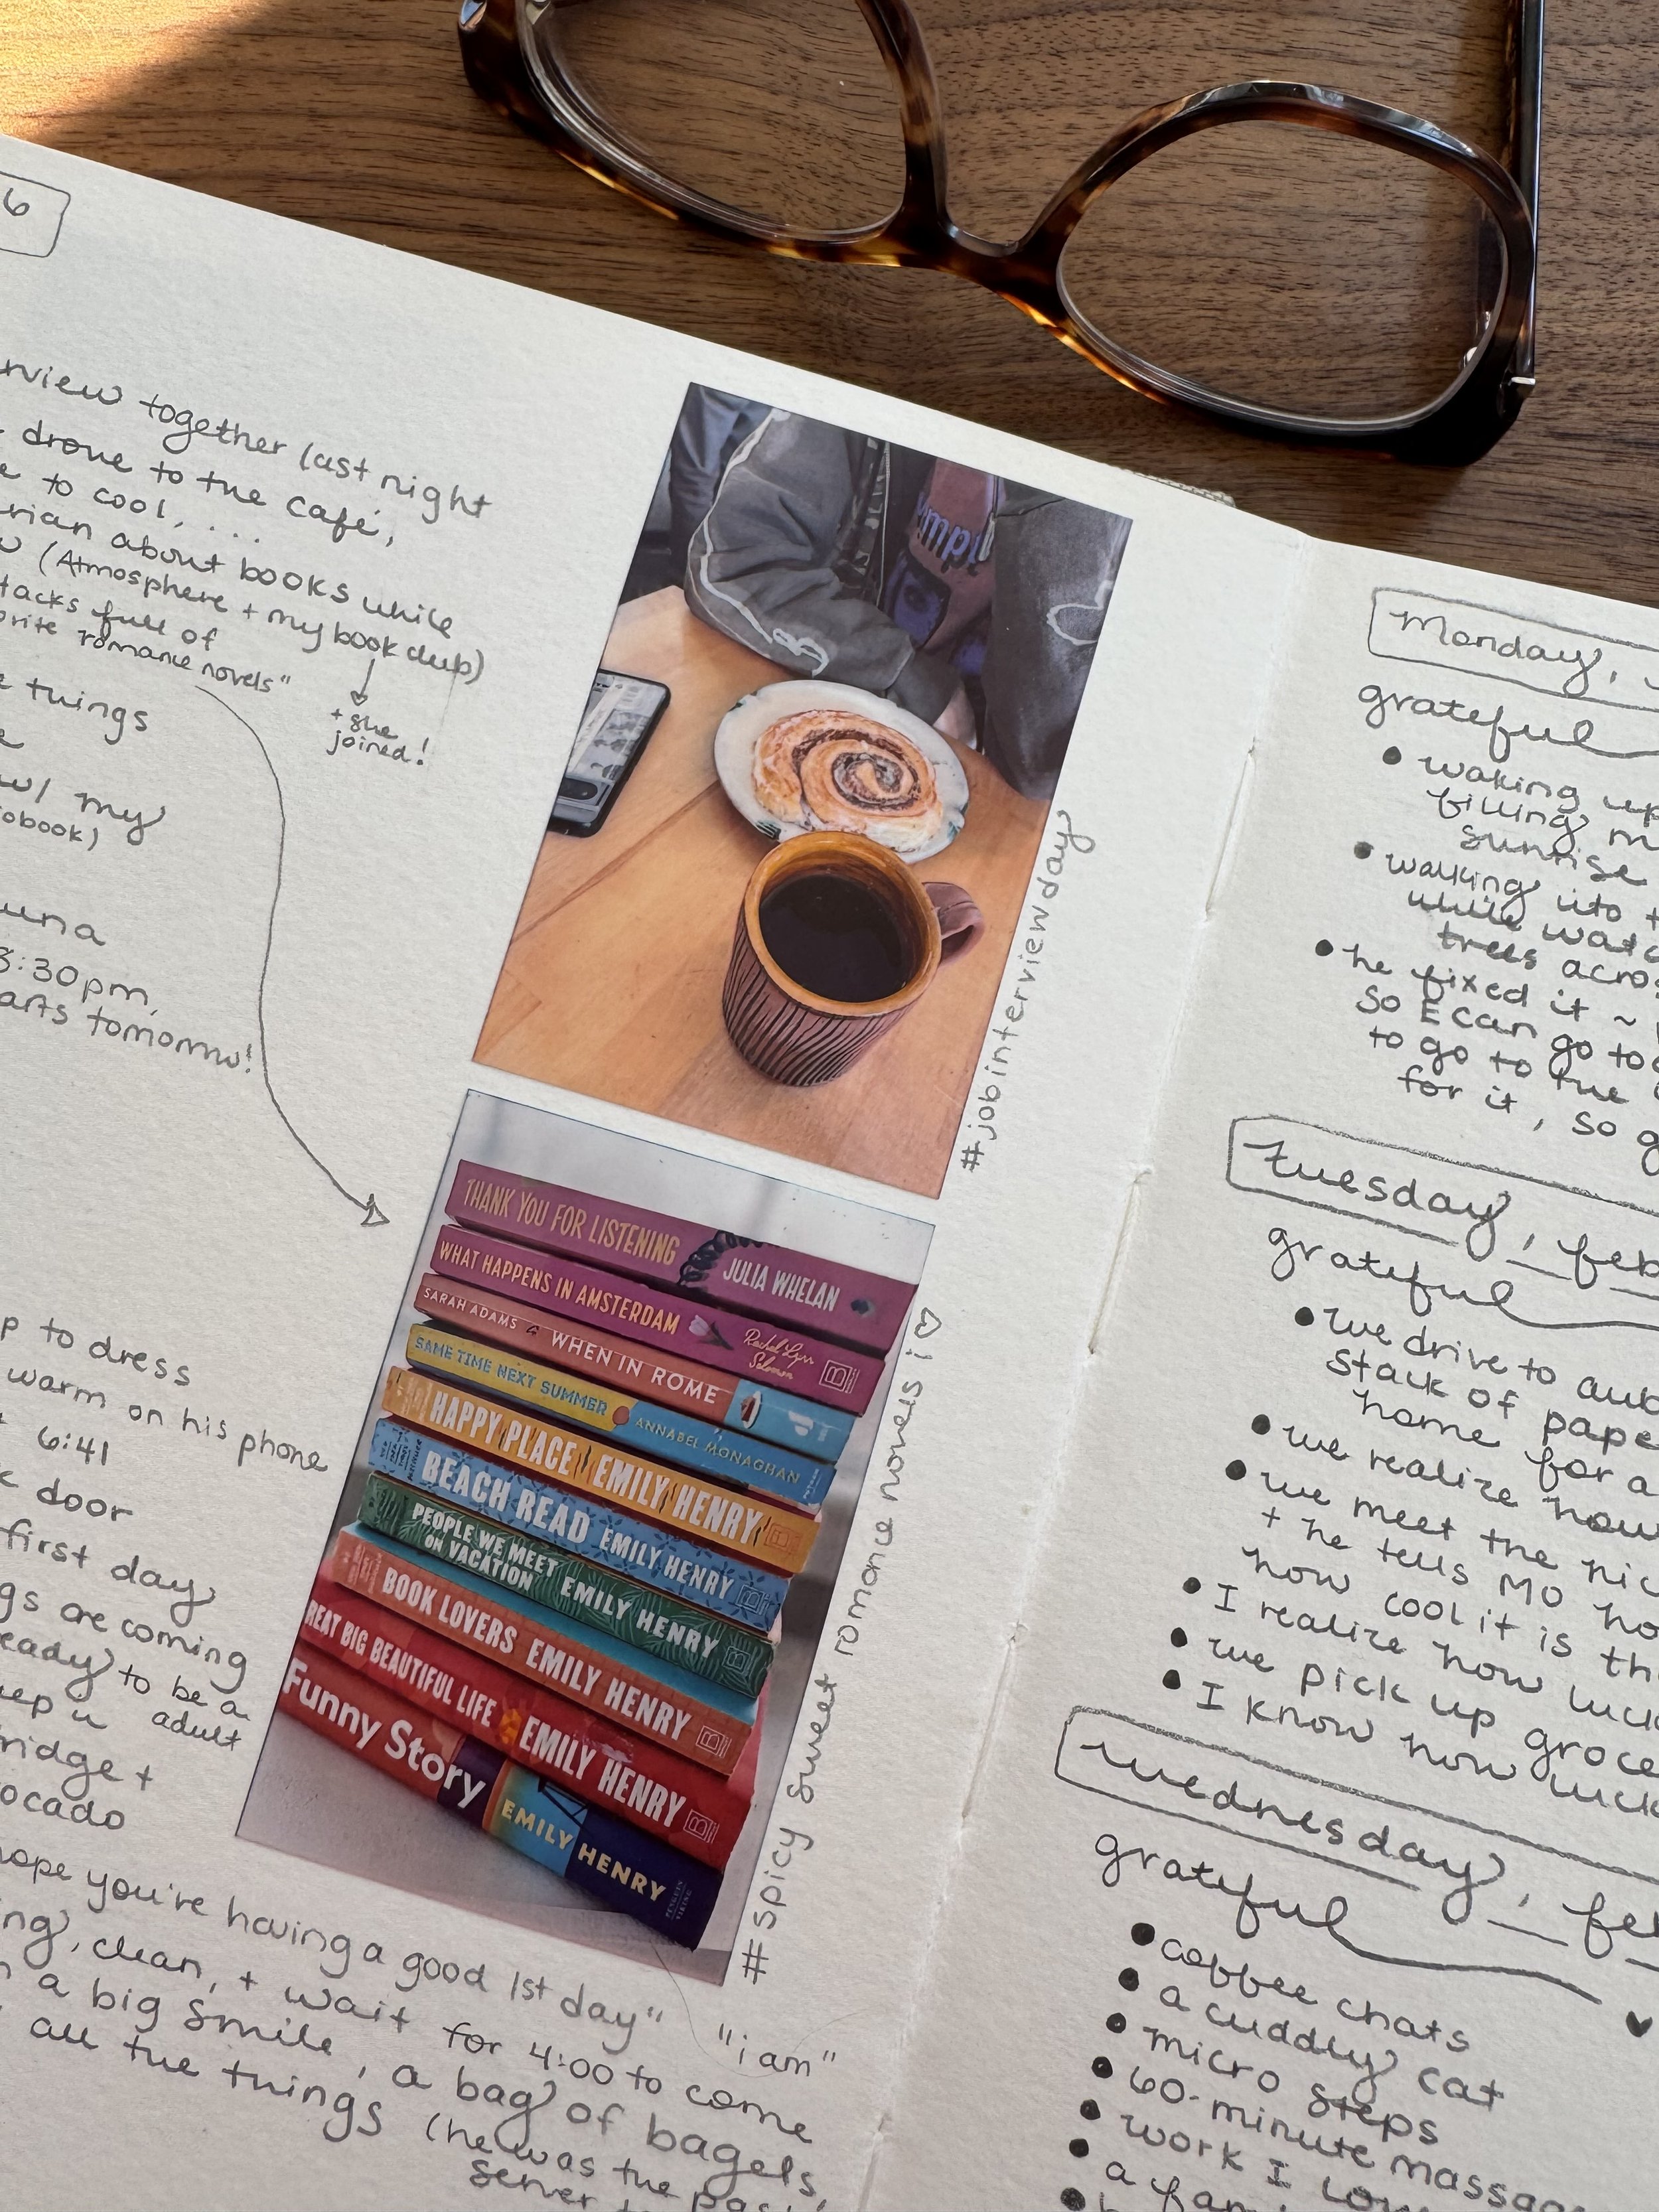 6
rview together (last night
drove to the café,
e to cool, ...
rian about books while
w (Atmosphere + my book club)
tacks full of
orite romance novels"
+ she
joined!
e things
e
w/ my
obook)
una
3:30pm,
arts tomorrow!
mpi
#jobinterviewday
THANK YOU FOR LISTENING JULIA WHELAN
WHAT HAPPENS IN AMSTERDAM Rachel Lynn Solomon
SARAH ADAMS WHEN IN ROME
SAME TIME NEXT SUMMER ANNABEL MONAGHAN
HAPPY PLACE EMILY HENRY
BEACH READ EMILY HENRY
PEOPLE WE MEET ON VACATION EMILY HENRY
BOOK LOVERS EMILY HENRY
REAT BIG BEAUTIFUL LIFE EMILY HENRY
Funny Story EMILY HENRY
#spicy sweet romance novels i ♡
p to dress
warm on his phone
6:41
k door
first day
gs are coming
eady to be a
eep in adult
ridge +
ocado
hope you're having a good 1st day" "i am"
ing, clean, + wait for 4:00 to come
a big smile, a bag of bagels,
all the things (he was the
server
Monday,
grateful
• waking up
filling m
sunrise
• walking into
while watc
trees acros
• he fixed it ~
so E can go to
to go to the
for it, so g
Tuesday, feb
grateful
• we drive to
stack of pape
home for a
• we realize how
• we meet the nic
+ he tells MO ho
how cool it is th
• I realize how luck
• we pick up groce
• I know how luck
wednesday, fe
grateful
• coffee chats
• a cuddly cat
• micro steps
• 60-minute massag
• work I lov
• a fan